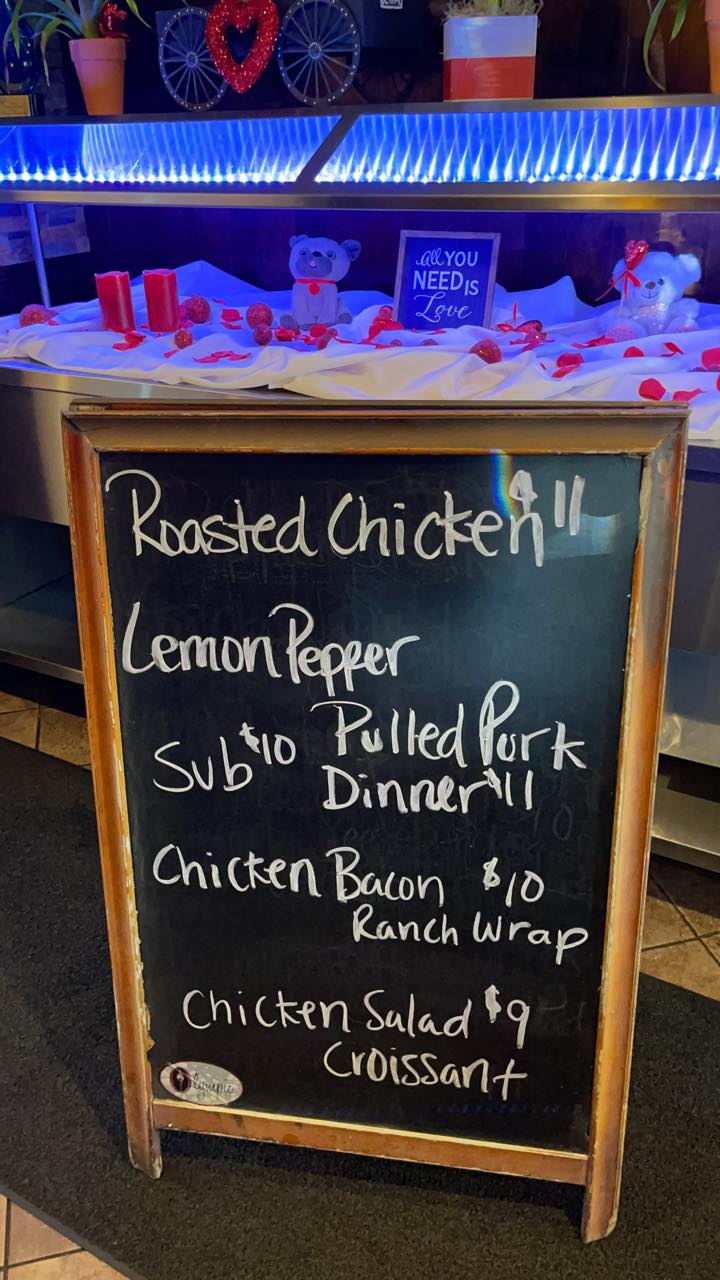 all YOU
NEED IS
Love
Roasted Chicken $11
Lemon Pepper
Sub $10 Pulled Pork
Dinner $11
Chicken Bacon $10
Ranch Wrap
Chicken Salad $9
Croissant
Olympic